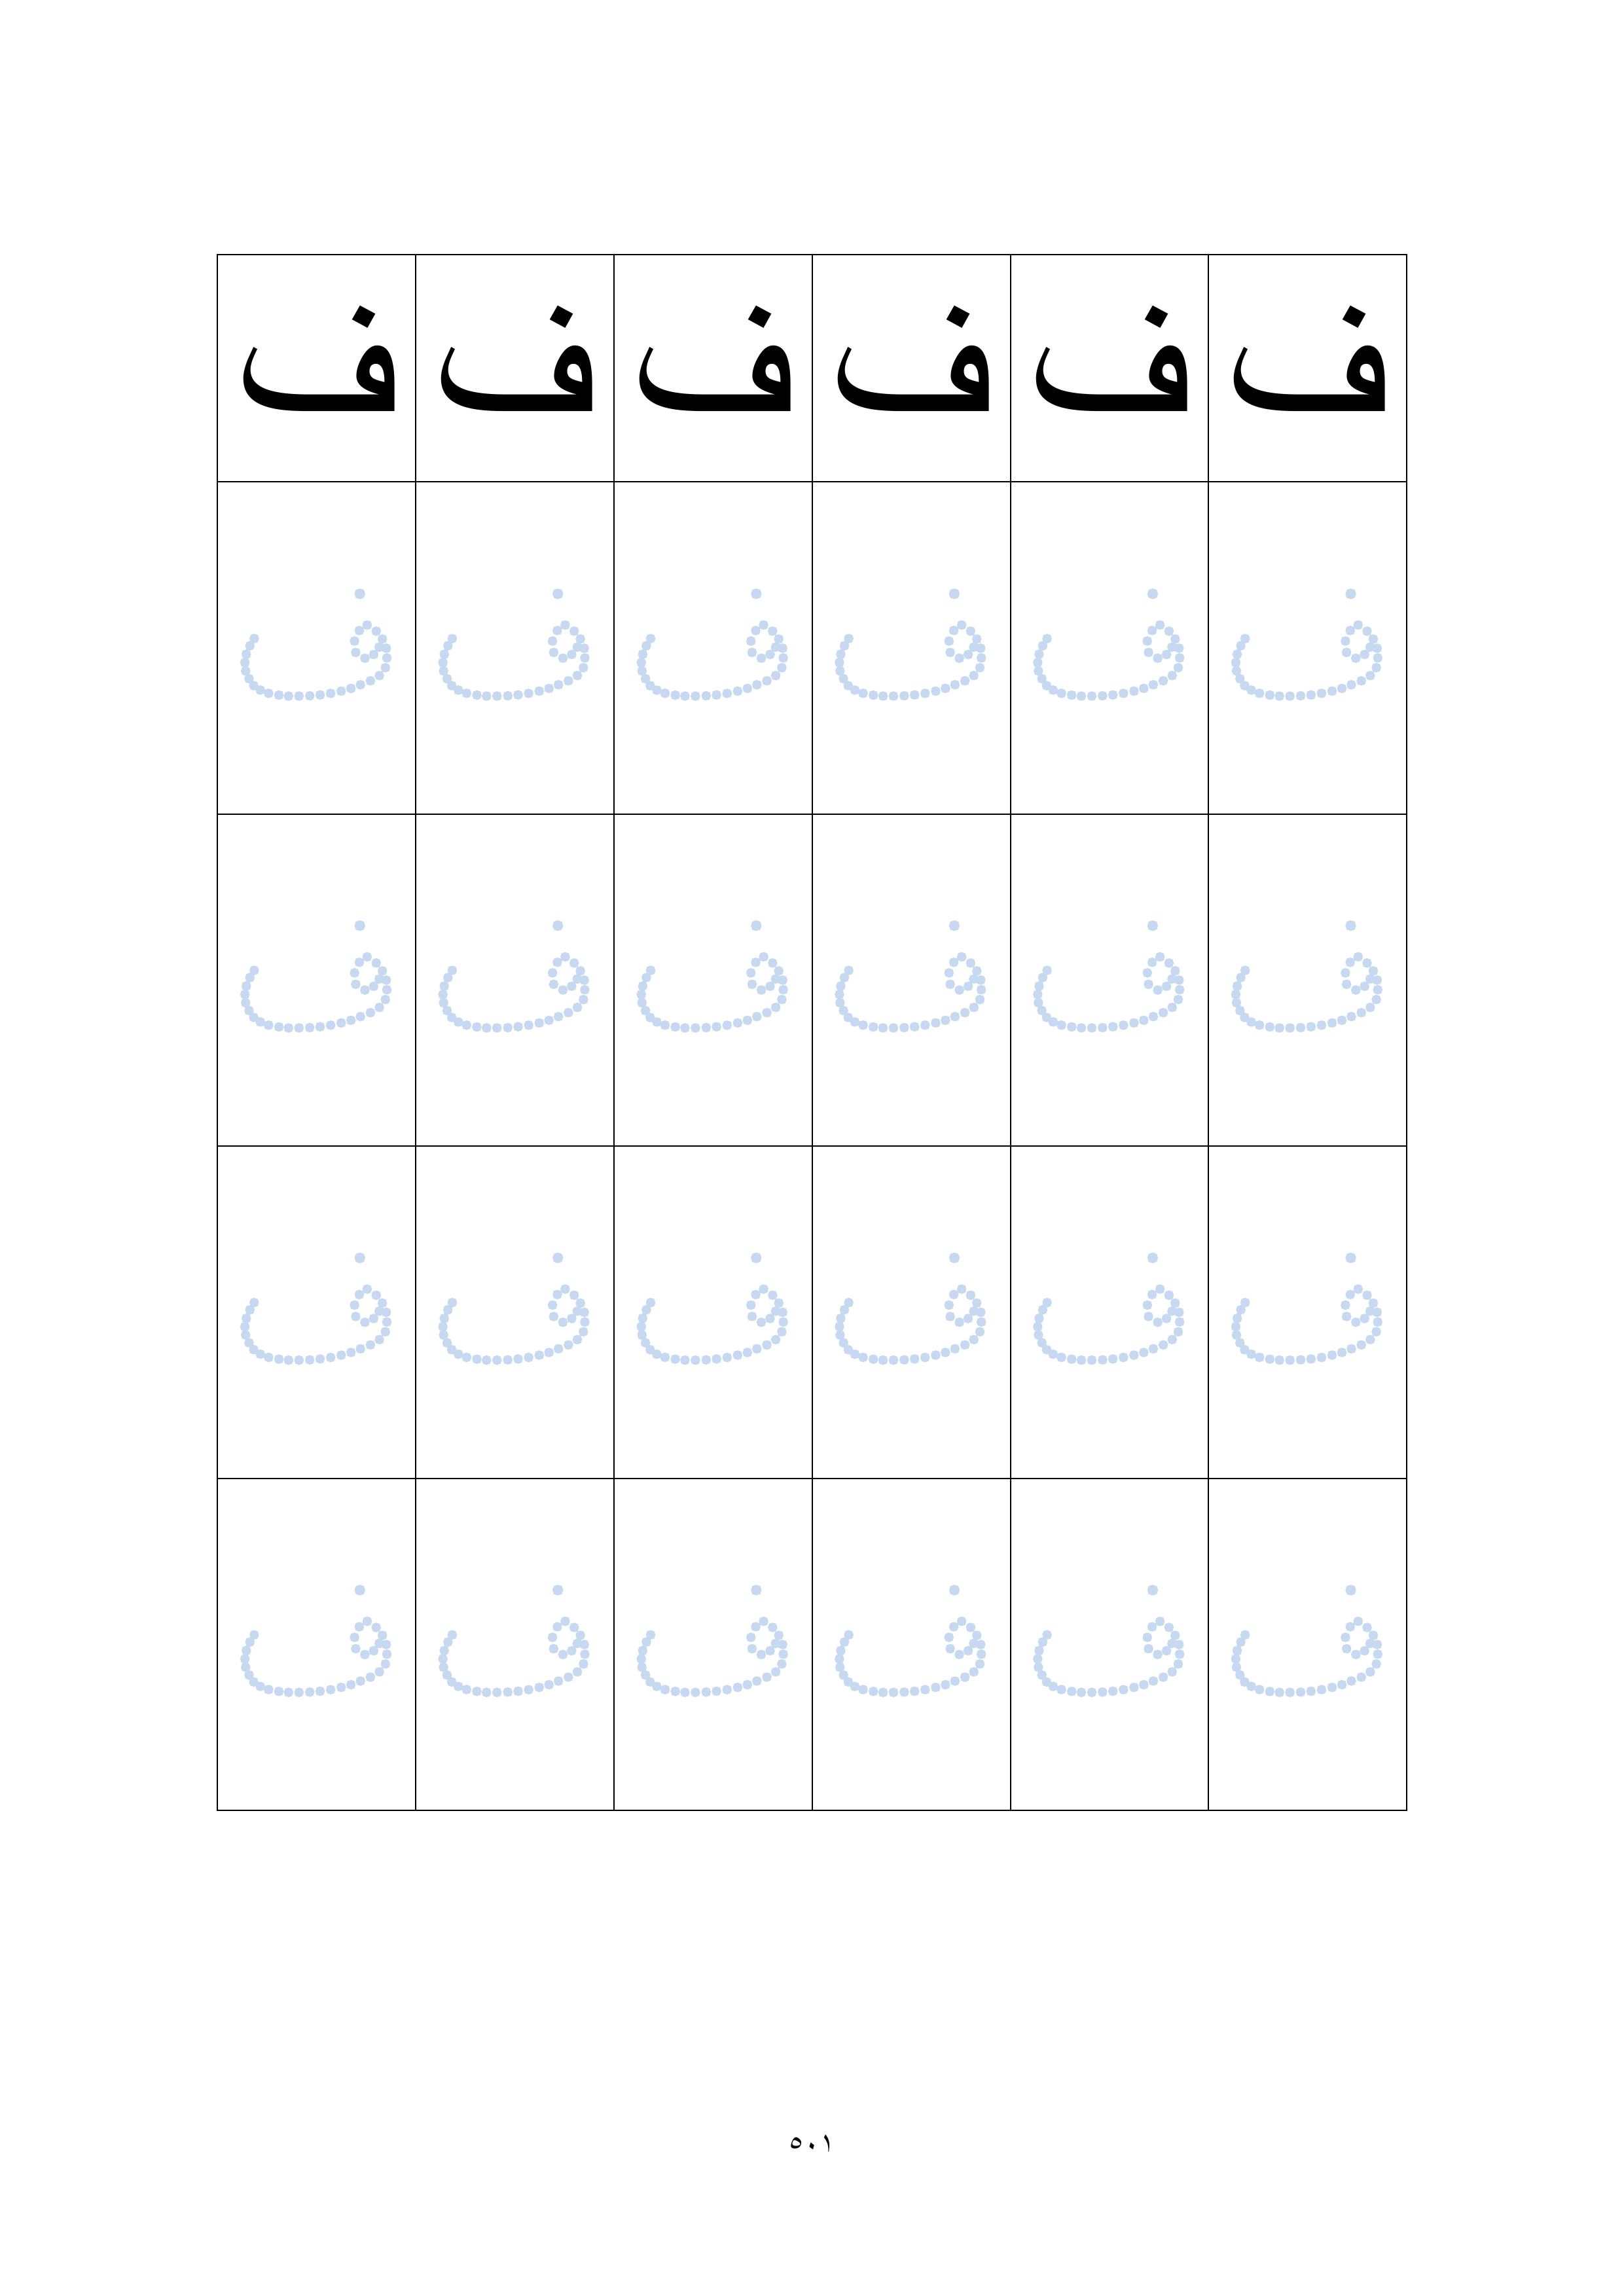 ف ف ف ف ف ف
ف ف ف ف ف ف
ف ف ف ف ف ف
ف ف ف ف ف ف
ف ف ف ف ف ف
٥٠١